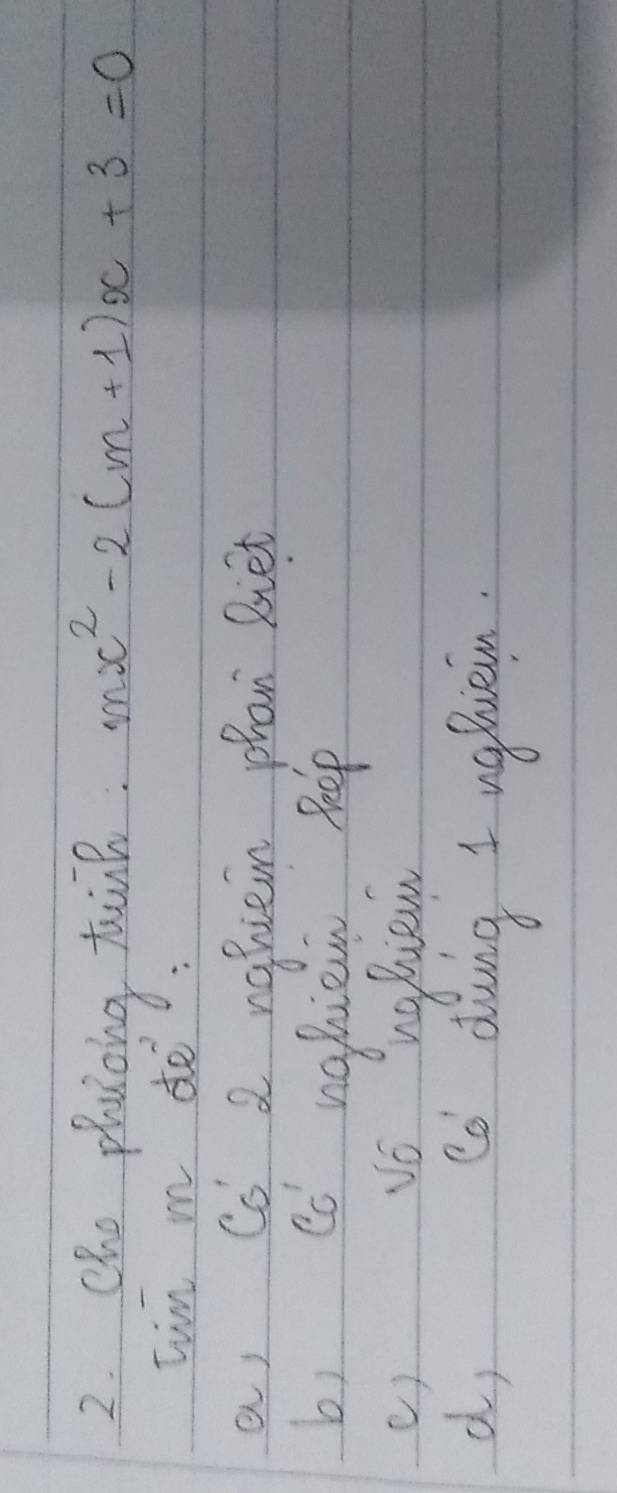 2. Cho phương trình: mx² - 2(m+1)x + 3 = 0
Tìm m để:
a, Có 2 nghiệm phân biệt
b, Có nghiệm kép
c, Vô nghiệm
d, Có đúng 1 nghiệm.